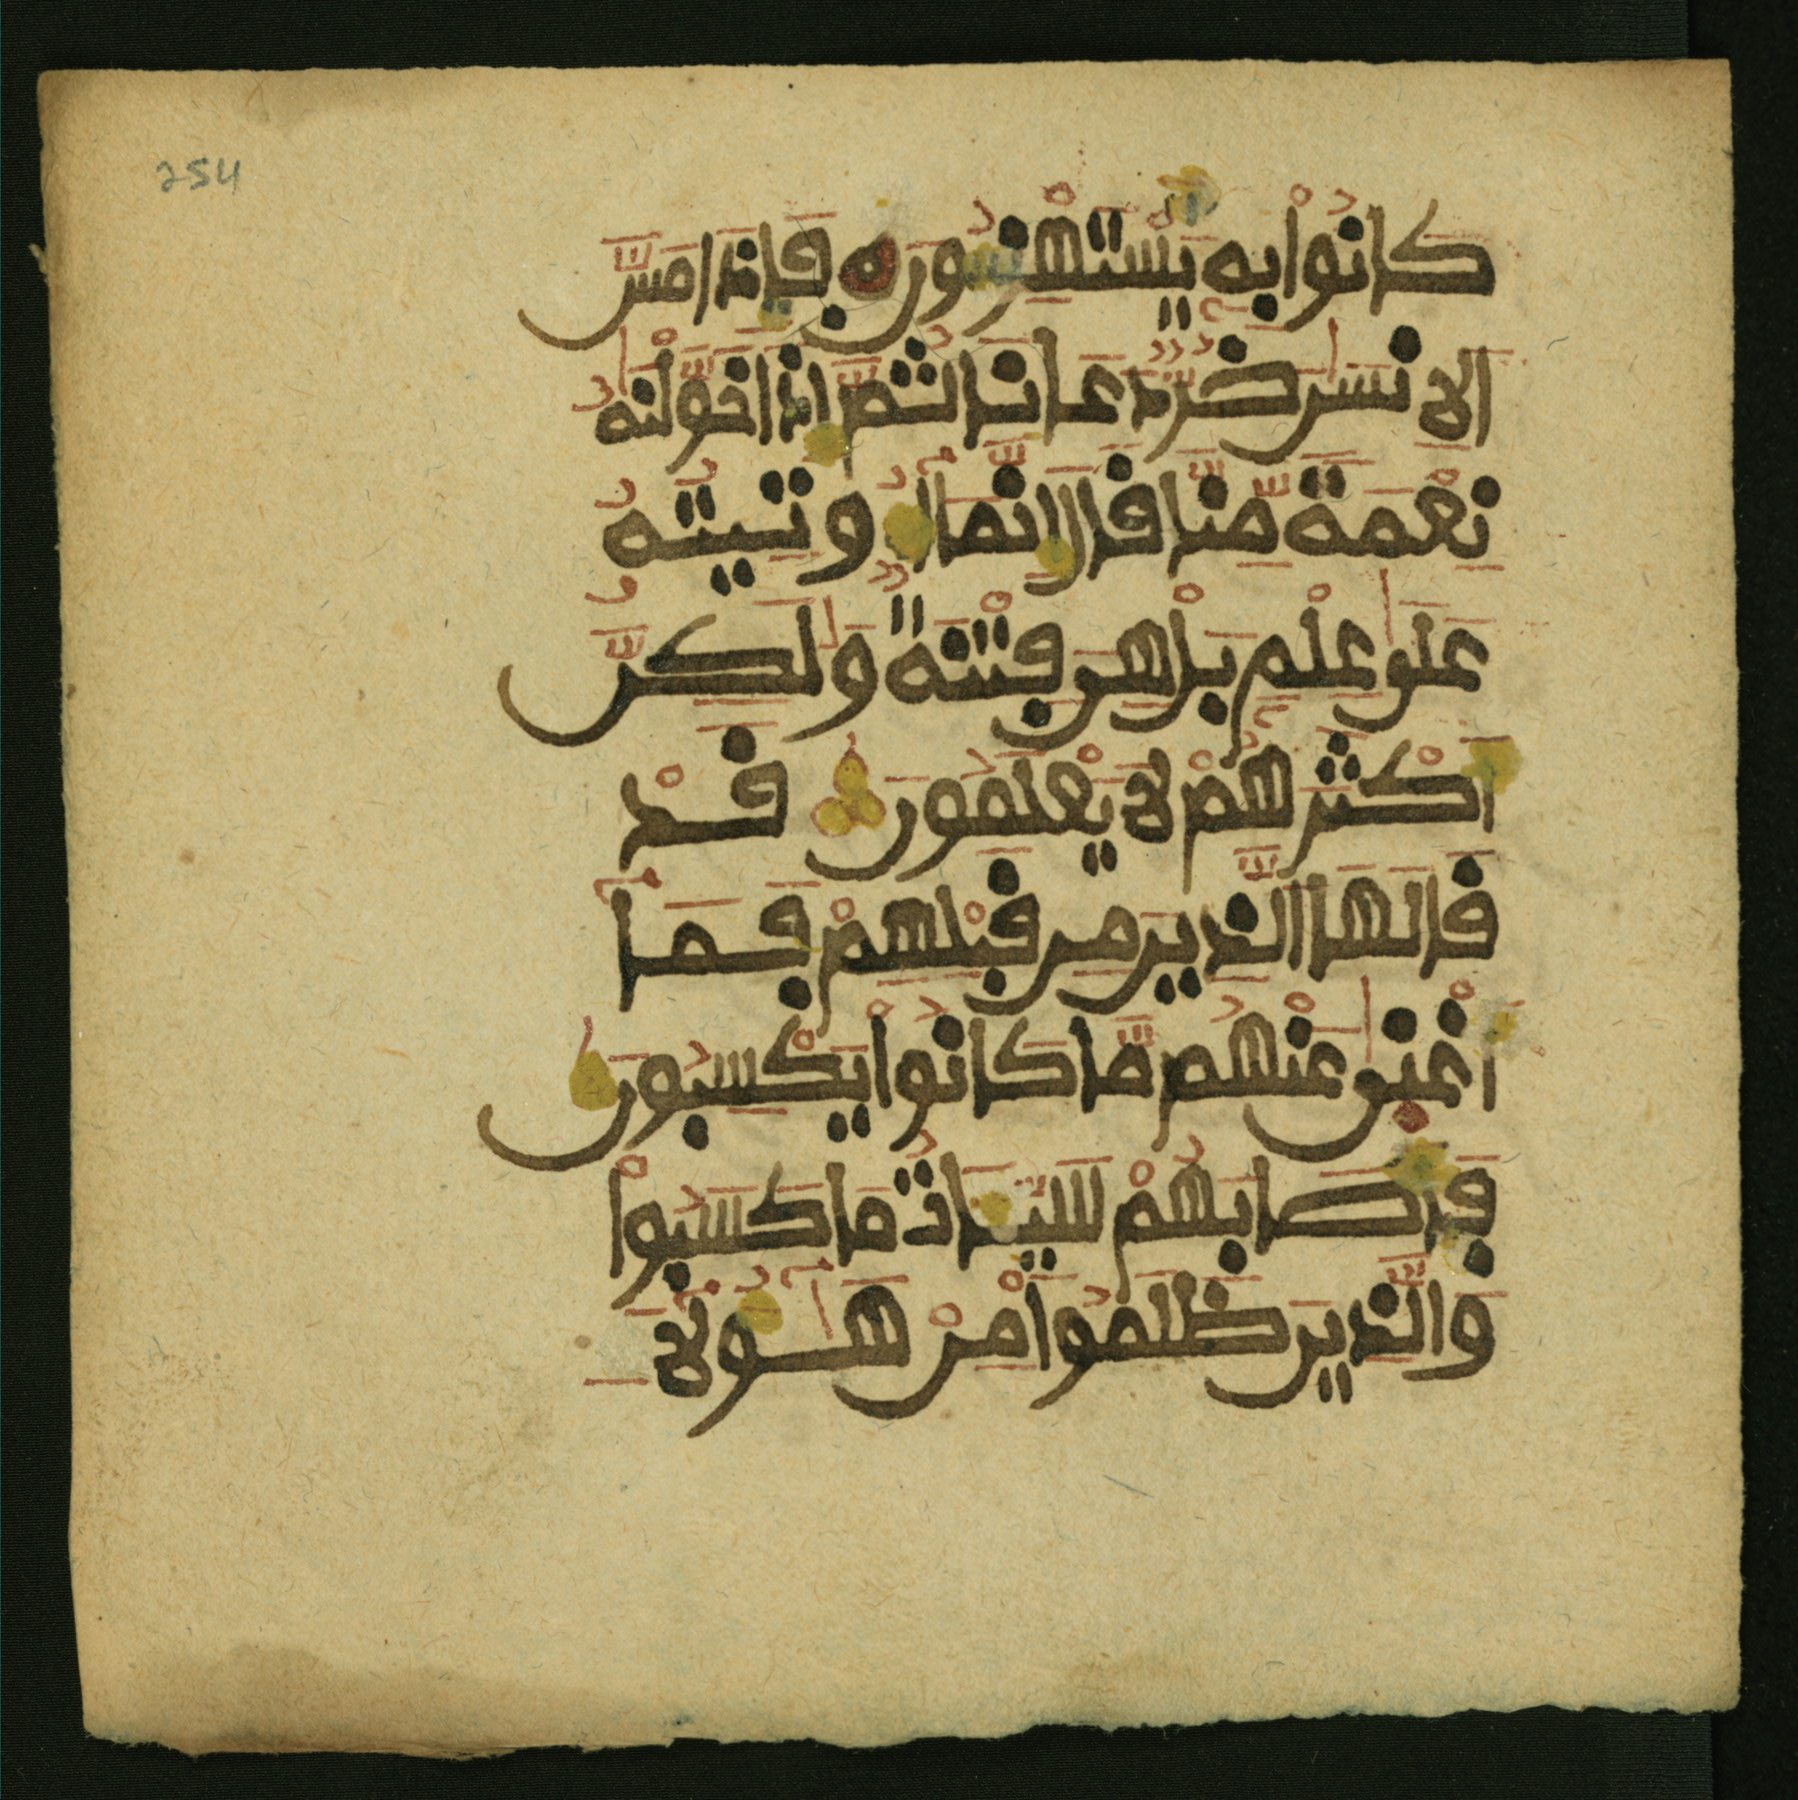 254
كَانُواْ بِهِ يَسْتَهْزِءُونَ فَإِذَا مَسَّ
الِانسَٰنَ ضُرٌّ دَعَانَا ثُمَّ إِذَا خَوَّلْنَٰهُ
نِعْمَةً مِّنَّا قَالَ إِنَّمَآ أُوتِيتُهُ
عَلَىٰ عِلْمٍ بَلْ هِيَ فِتْنَةٌ وَلَٰكِنَّ
أَكْثَرَهُمْ لَا يَعْلَمُونَ قَدْ
قَالَهَا الَّذِينَ مِن قَبْلِهِمْ فَمَآ
أَغْنَىٰ عَنْهُم مَّا كَانُواْ يَكْسِبُونَ
فَأَصَابَهُمْ سَيِّـَٔاتُ مَا كَسَبُواْ
وَالَّذِينَ ظَلَمُواْ مِنْ هَٰٓؤُلَآ